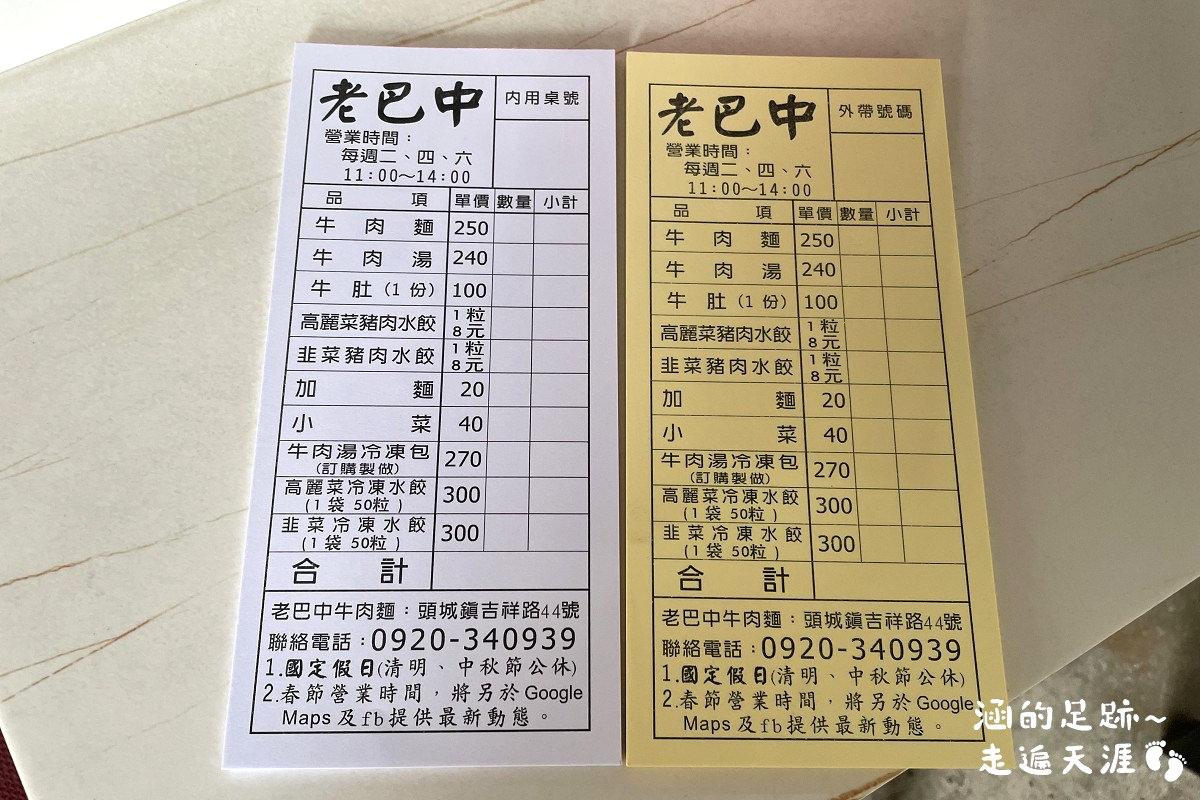 老巴中
內用桌號
營業時間：
每週二、四、六
11:00～14:00
品項 單價 數量 小計
牛肉麵 250
牛肉湯 240
牛肚(1份) 100
高麗菜豬肉水餃 1粒8元
韭菜豬肉水餃 1粒8元
加麵 20
小菜 40
牛肉湯冷凍包(訂購製做) 270
高麗菜冷凍水餃(1袋 50粒) 300
韭菜冷凍水餃(1袋 50粒) 300
合計
老巴中牛肉麵：頭城鎮吉祥路44號
聯絡電話：0920-340939
1.國定假日(清明、中秋節公休)
2.春節營業時間，將另於Google
Maps及fb提供最新動態。
老巴中
外帶號碼
營業時間：
每週二、四、六
11:00～14:00
品項 單價 數量 小計
牛肉麵 250
牛肉湯 240
牛肚(1份) 100
高麗菜豬肉水餃 1粒8元
韭菜豬肉水餃 1粒8元
加麵 20
小菜 40
牛肉湯冷凍包(訂購製做) 270
高麗菜冷凍水餃(1袋 50粒) 300
韭菜冷凍水餃(1袋 50粒) 300
合計
老巴中牛肉麵：頭城鎮吉祥路44號
聯絡電話：0920-340939
1.國定假日(清明、中秋節公休)
2.春節營業時間，將另於Google
Maps及fb提供最新動態。
涵的足跡~
走遍天涯